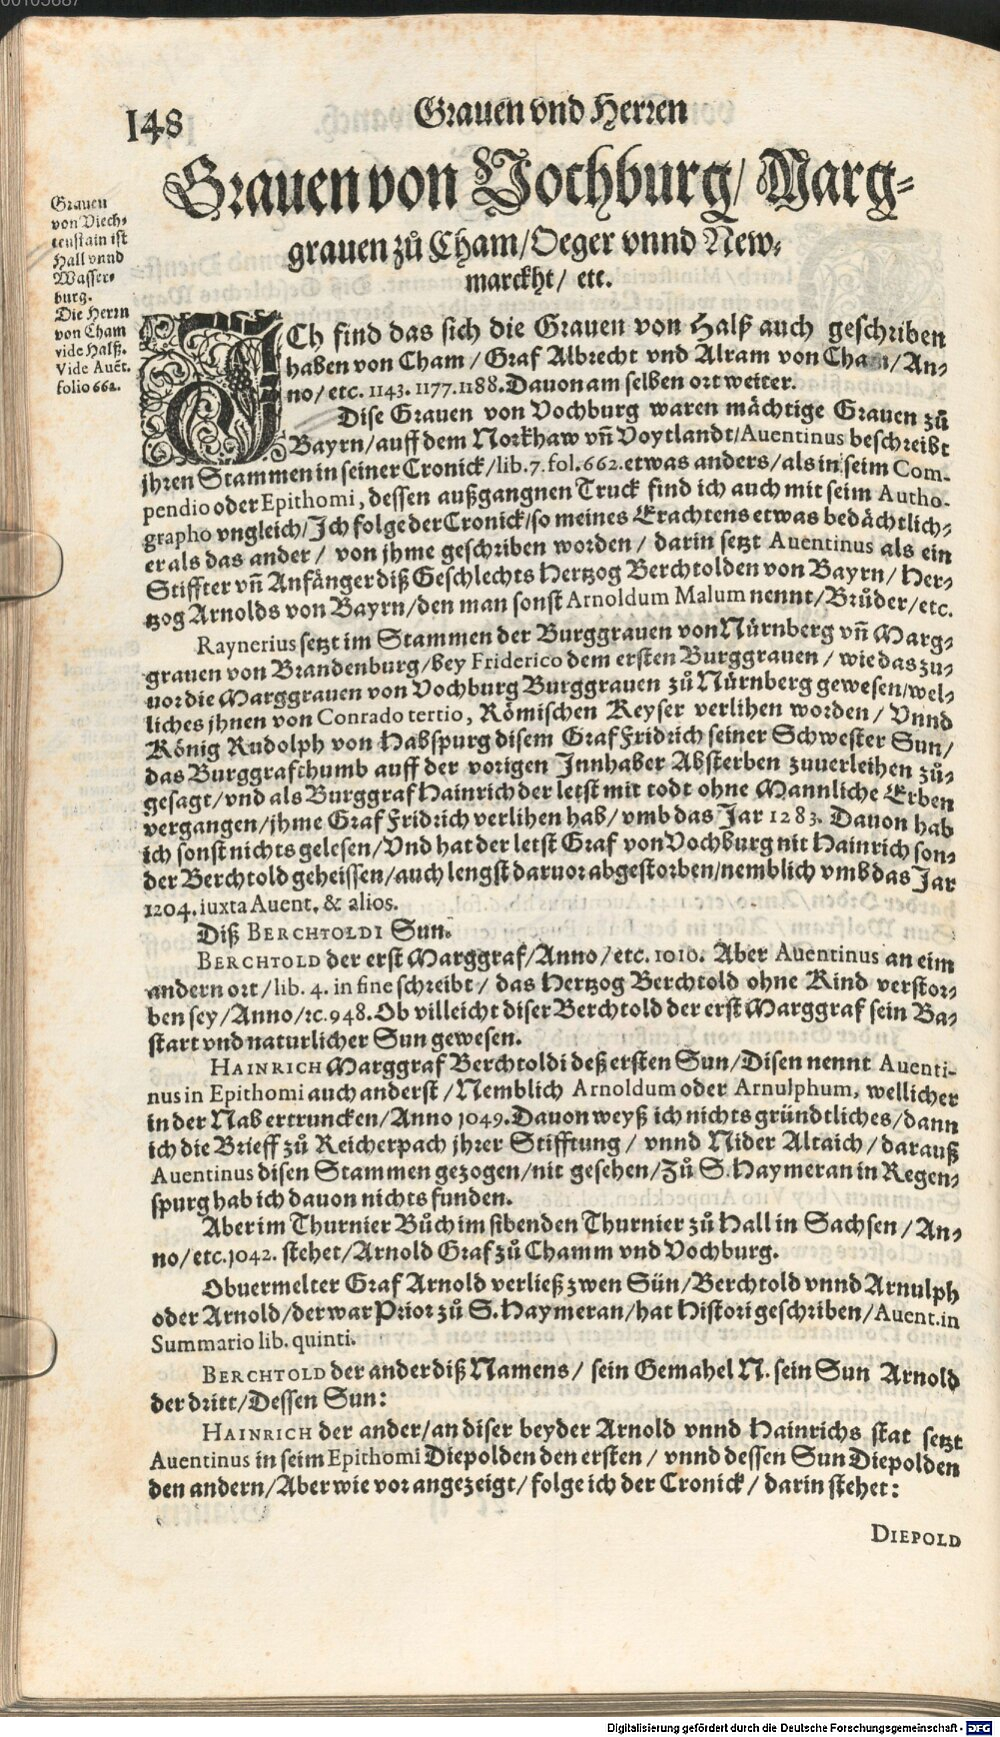 148
Grauen vnd Herren
Grauen von Vochburg/ Marg-
grauen zů Cham/Oeger vnnd New-
marckht/ etc.
Grauen
von Viech-
tenstain ist
Hall vnnd
Wasser-
burg.
Die Herrn
von Cham
vide Halß.
Vide Auēt.
folio 662.
ICh find das sich die Grauen von Halß auch geschriben
haben von Cham/ Graf Albrecht vnd Alram von Cham/An-
no/ etc. 1143. 1177.1188.Dauon am selben ort weiter.
Dise Grauen von Vochburg waren mächtige Grauen zů
Bayrn/auff dem Norkhaw vñ Voytlandt/Auentinus beschreibt
jhren Stammen in seiner Cronick/lib.7.fol.662.etwas anders/als in seim Com-
pendio oder Epithomi, dessen außgangnen Truck find ich auch mit seim Autho-
grapho vngleich/Ich folge der Cronick/so meines Erachtens etwas bedächtlich-
er als das ander/ von jhme geschriben worden/ darin setzt Auentinus als ein
Stiffter vñ Anfänger diß Geschlechts Hertzog Berchtolden von Bayrn/ Her-
tzog Arnolds von Bayrn/den man sonst Arnoldum Malum nennt/Brůder/etc.
Raynerius setzt im Stammen der Burggrauen von Nürnberg vñ Marg-
grauen von Brandenburg/bey Friderico dem ersten Burggrauen/ wie das zu-
uor die Marggrauen von Vochburg Burggrauen zů Nürnberg gewesen/wel-
liches jhnen von Conrado tertio, Römischen Keyser verlihen worden/ Vnnd
König Rudolph von Habspurg disem Graf Fridrich seiner Schwester Sun/
das Burggrafthumb auff der vorigen Innhaber Absterben zuuerleihen zů-
gesagt/vnd als Burggraf Hainrich der letst mit todt ohne Mannliche Erben
vergangen/jhme Graf Fridrich verlihen hab/ vmb das Jar 1283. Dauon hab
ich sonst nichts gelesen/Vnd hat der letst Graf von Vochburg nit Hainrich son-
der Berchtold geheissen/auch lengst daruor abgestorben/nemblich vmb das Jar
1204.iuxta Auent. & alios.
Diß BERCHTOLDI Sun.
BERCHTOLD der erst Marggraf/Anno/etc. 1010. Aber Auentinus an eim
andern ort/lib. 4. in fine schreibt/ das Hertzog Berchtold ohne Kind verstor-
ben sey/Anno/ꝛc.948.Ob villeicht diser Berchtold der erst Marggraf sein Ba-
start vnd naturlicher Sun gewesen.
HAINRICH Marggraf Berchtoldi deß ersten Sun/Disen nennt Auenti-
nus in Epithomi auch anderst/Nemblich Arnoldum oder Arnulphum, wellicher
in der Nab ertruncken/Anno 1049.Dauon weyß ich nichts gründtliches/dann
ich die Brieff zů Reicherpach jhrer Stifftung/ vnnd Nider Altaich/darauß
Auentinus disen Stammen gezogen/nit gesehen/Zů S.Haymeran in Regen-
spurg hab ich dauon nichts funden.
Aber im Thurnier Bůch im sibenden Thurnier zů Hall in Sachsen/An-
no/etc.1042. stehet/Arnold Graf zů Chamm vnd Vochburg.
Obuermelter Graf Arnold verließ zwen Sün/Berchtold vnnd Arnulph
oder Arnold/der war Prior zů S.Haymeran/hat Histori geschriben/Auent.in
Summario lib. quinti.
BERCHTOLD der ander diß Namens/ sein Gemahel N. sein Sun Arnold
der dritt/Dessen Sun:
HAINRICH der ander/an diser beyder Arnold vnnd Hainrichs stat setzt
Auentinus in seim Epithomi Diepolden den ersten/ vnnd dessen Sun Diepolden
den andern/Aber wie vor angezeigt/folge ich der Cronick/ darin stehet:
DIEPOLD
Digitalisierung gefördert durch die Deutsche Forschungsgemeinschaft - DFG